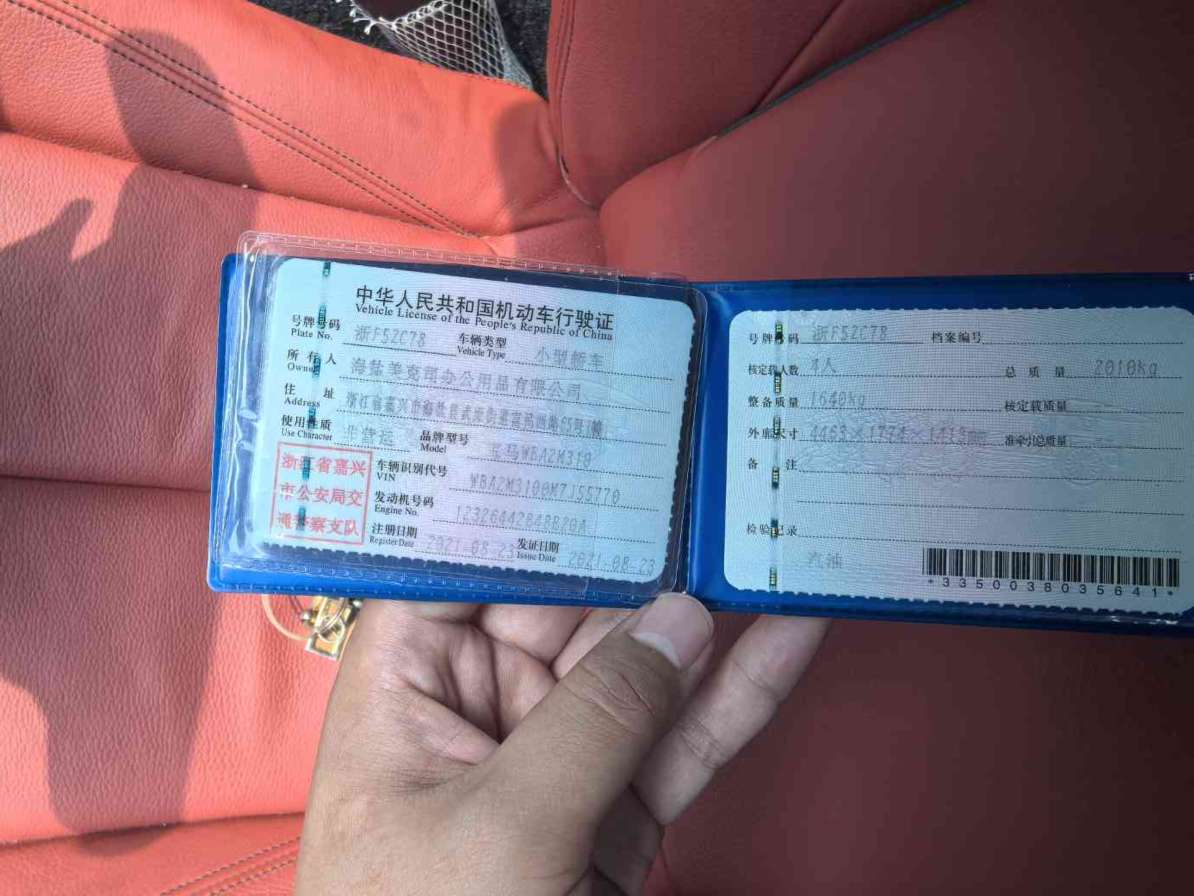 中华人民共和国机动车行驶证
Vehicle License of the People's Republic of China
号牌号码 浙F52C78 车辆类型 小型轿车
Plate No. Vehicle Type
所有人 海盐美克司办公用品有限公司
Owner
住址 浙江省嘉兴市
Address
使用性质 非营运 品牌型号 宝马WBA2M310
Use Character Model
浙江省嘉兴
市公安局交
通警察支队
车辆识别代号 WBA2M3100M7J55770
VIN
发动机号码
Engine No.
注册日期 2021-08-23 发证日期 2021-08-23
Register Date Issue Date
号牌号码 浙F52C78 档案编号
核定载人数 4人 总质量 2010kg
整备质量 1640kg 核定载质量
外廓尺寸 4463×1774×1413mm 准牵引总质量
备注
检验记录
汽油
*3350038035641*